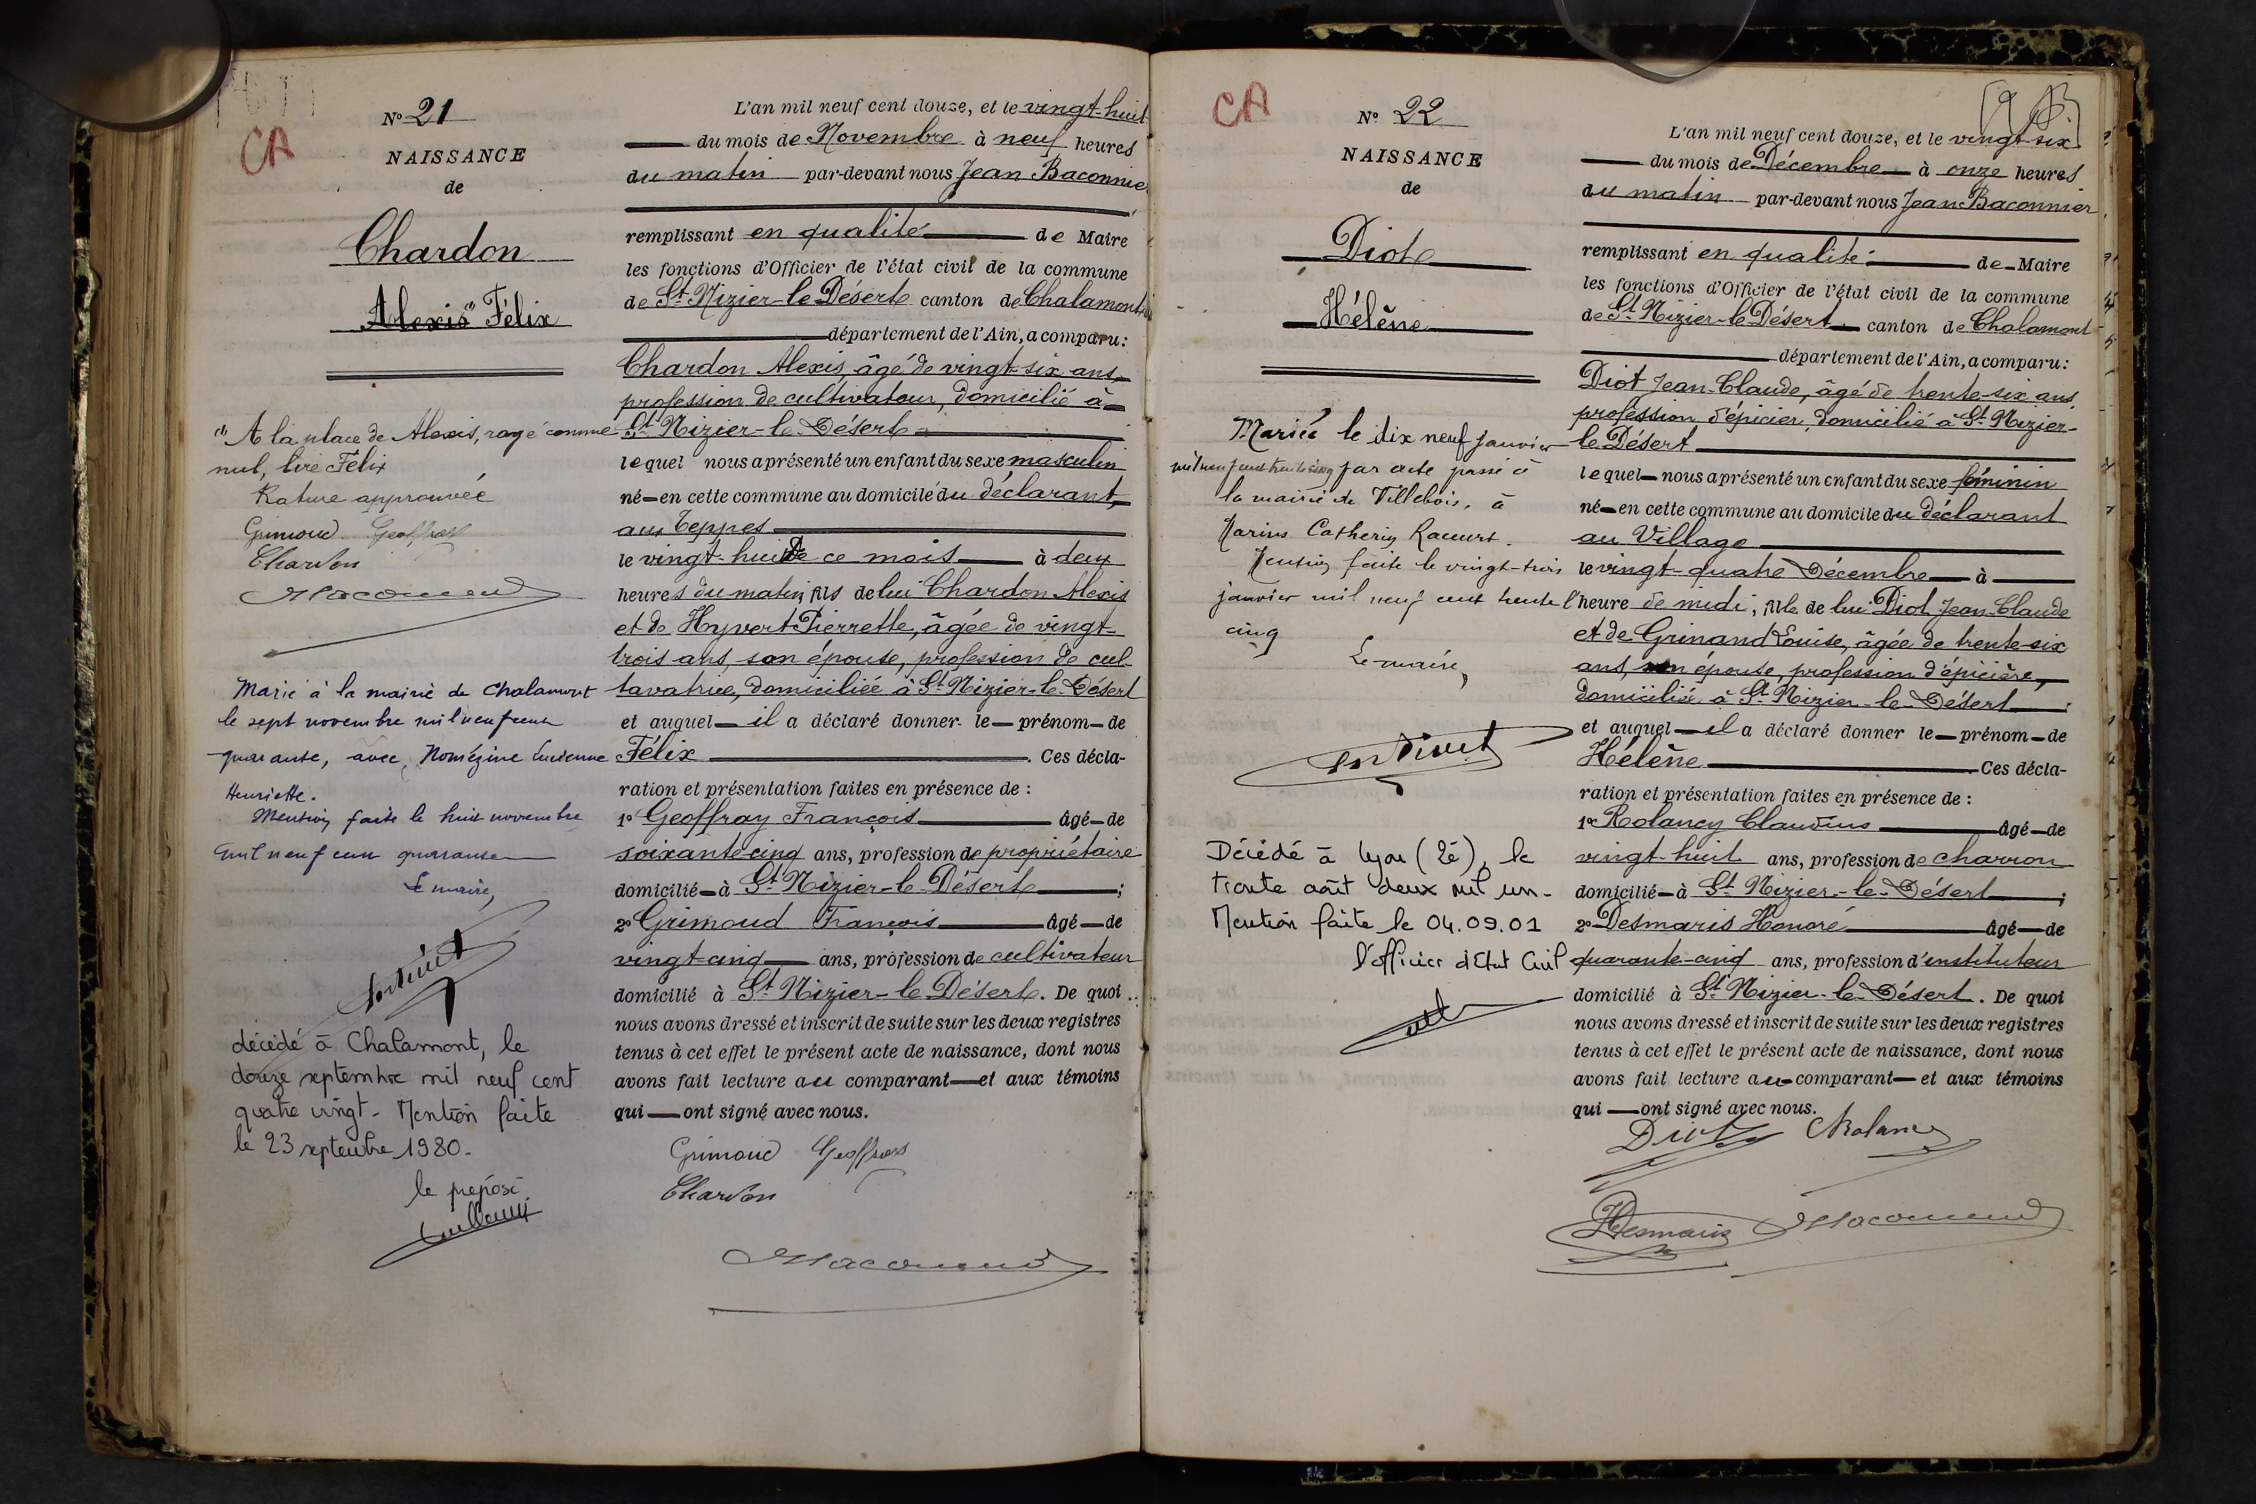 CA
Nº 21
NAISSANCE
de
Chardon
Alexis (1) Félix
(1) A la place de Alexis, rayé comme
nul, lire Félix
Rature approuvée
Grimoud Geoffray
Chardon
Marié à la mairie de Chalamont
le sept novembre mil neuf cent
quarante, avec, Lucienne
Henriette.
Mention faite le huit novembre
mil neuf cent quarante
Le maire,
décédé à Chalamont, le
douze septembre mil neuf cent
quatre vingt - Mention faite
le 23 septembre 1980.
le préposé
L'an mil neuf cent douze, et le vingt-huit
du mois de Novembre à neuf heures
du matin par-devant nous Jean Baconnier
remplissant en qualité de Maire
les fonctions d'Officier de l'état civil de la commune
de St Nizier-le Désert canton de Chalamont
département de l'Ain, a comparu :
Chardon Alexis, âgé de vingt-six ans,
profession de cultivateur, domicilié à
St Nizier-le-Désert
lequel nous a présenté un enfant du sexe masculin
né en cette commune au domicile du déclarant,
aux Teppes
le vingt-huit de ce mois à deux
heures du matin, fils de lui Chardon Alexis
et de Hyvert Pierrette, âgée de vingt-
trois ans, son épouse, profession de cul-
tavatrice, domiciliée à St Nizier-le-Désert
et auquel il a déclaré donner le prénom de
Félix . Ces décla-
ration et présentation faites en présence de :
1º Geoffray François âgé de
soixante-cinq ans, profession de propriétaire
domicilié à St Nizier-le-Désert ;
2º Grimoud François âgé de
vingt-cinq ans, profession de cultivateur
domicilié à St Nizier-le Désert. De quoi
nous avons dressé et inscrit de suite sur les deux registres
tenus à cet effet le présent acte de naissance, dont nous
avons fait lecture au comparant et aux témoins
qui ont signé avec nous.
Grimoud Geoffray
Chardon
CA
Nº 22
NAISSANCE
de
Diot
Hélène
Mariée le dix neuf janvier
mil neuf cent trente cinq par acte passé à
la mairie de Villebois, à
Marius Catherin
Mention faite le vingt-trois
janvier mil neuf cent trente
cinq
Le maire,
Décédé à Lyon (2è), le
trente août deux mil un -
Mention faite le 04.09.01
l'officier d'Etat Civil
L'an mil neuf cent douze, et le vingt-six
du mois de Décembre à onze heures
du matin par-devant nous Jean Baconnier
remplissant en qualité de Maire
les fonctions d'Officier de l'état civil de la commune
de St Nizier-le Désert canton de Chalamont
département de l'Ain, a comparu :
Diot Jean-Claude, âgé de trente-six ans
profession d'épicier, domicilié à St Nizier-
le Désert
lequel nous a présenté un enfant du sexe féminin
né en cette commune au domicile du déclarant
au Village
le vingt-quatre Décembre à
l'heure de midi, fille de lui Diot Jean-Claude
et de Grinand Louise, âgée de trente-six
ans, son épouse, profession d'épicière,
domiciliée à St Nizier-le-Désert
et auquel il a déclaré donner le prénom de
Hélène Ces décla-
ration et présentation faites en présence de :
1º Rolancy Claudius âgé de
vingt-huit ans, profession de charron
domicilié à St Nizier-le-Désert ;
2º Desmaris Honoré âgé de
quarante-cinq ans, profession d'instituteur
domicilié à St Nizier-le-Désert. De quoi
nous avons dressé et inscrit de suite sur les deux registres
tenus à cet effet le présent acte de naissance, dont nous
avons fait lecture au comparant et aux témoins
qui ont signé avec nous.
Diot Rolancy
HDesmaris